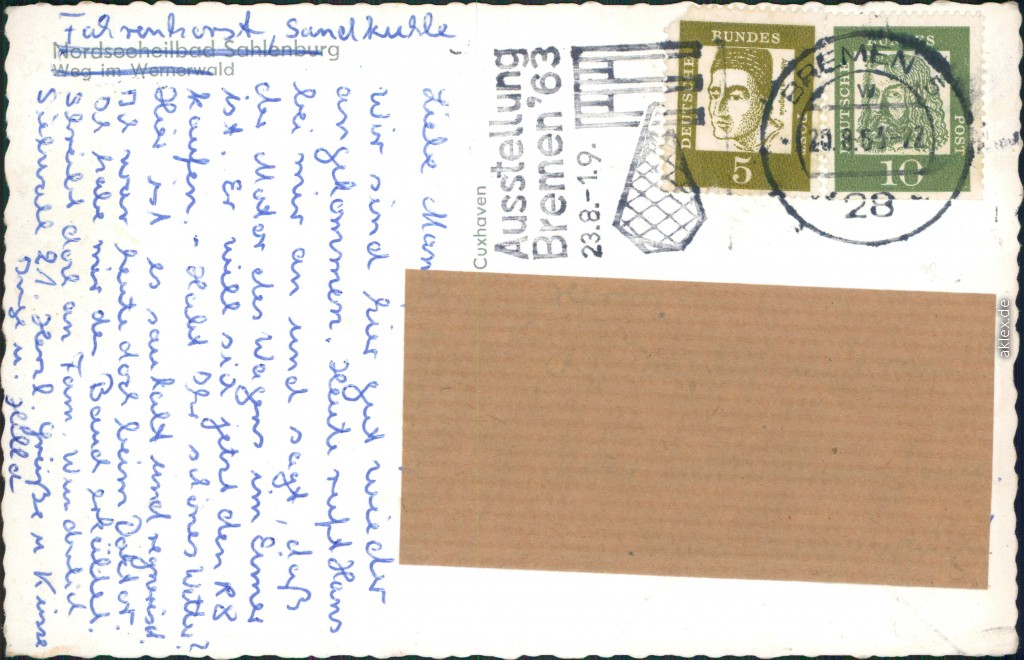 Fahrenhorst, Sandkuhle
Nordseeheilbad Sahlenburg
Weg im Wernerwald
Liebe Mam
wir sind hier gut wieder
angekommen. Heute ruft Hans
bei mir an und sagt, daß
der Motor des Wagens im Eimer
ist. Er will sich jetzt den R8
kaufen. - Habt Ihr schönes Wetter?
Hier ist es saukalt und regnerisch.
Ich war heute doch beim Doktor.
Ich habe mir den Bauch erkältet.
Schreibt doch an Fam. Wunderlich
Sielwall 21. Herzl. Grüße u. Küsse
Inge u. Hella
Cuxhaven
Ausstellung
Bremen '63
23.8.-1.9.
DEUTSCHE
BUNDES
POST
5
DEUTSCHE
BUNDES
POST
10
BREMEN 5
w
20.8.63-22
28
aklex.de